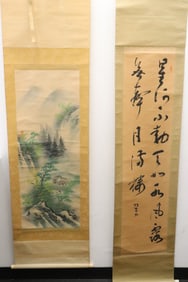 星河不動天如水風露
無聲月滿樓